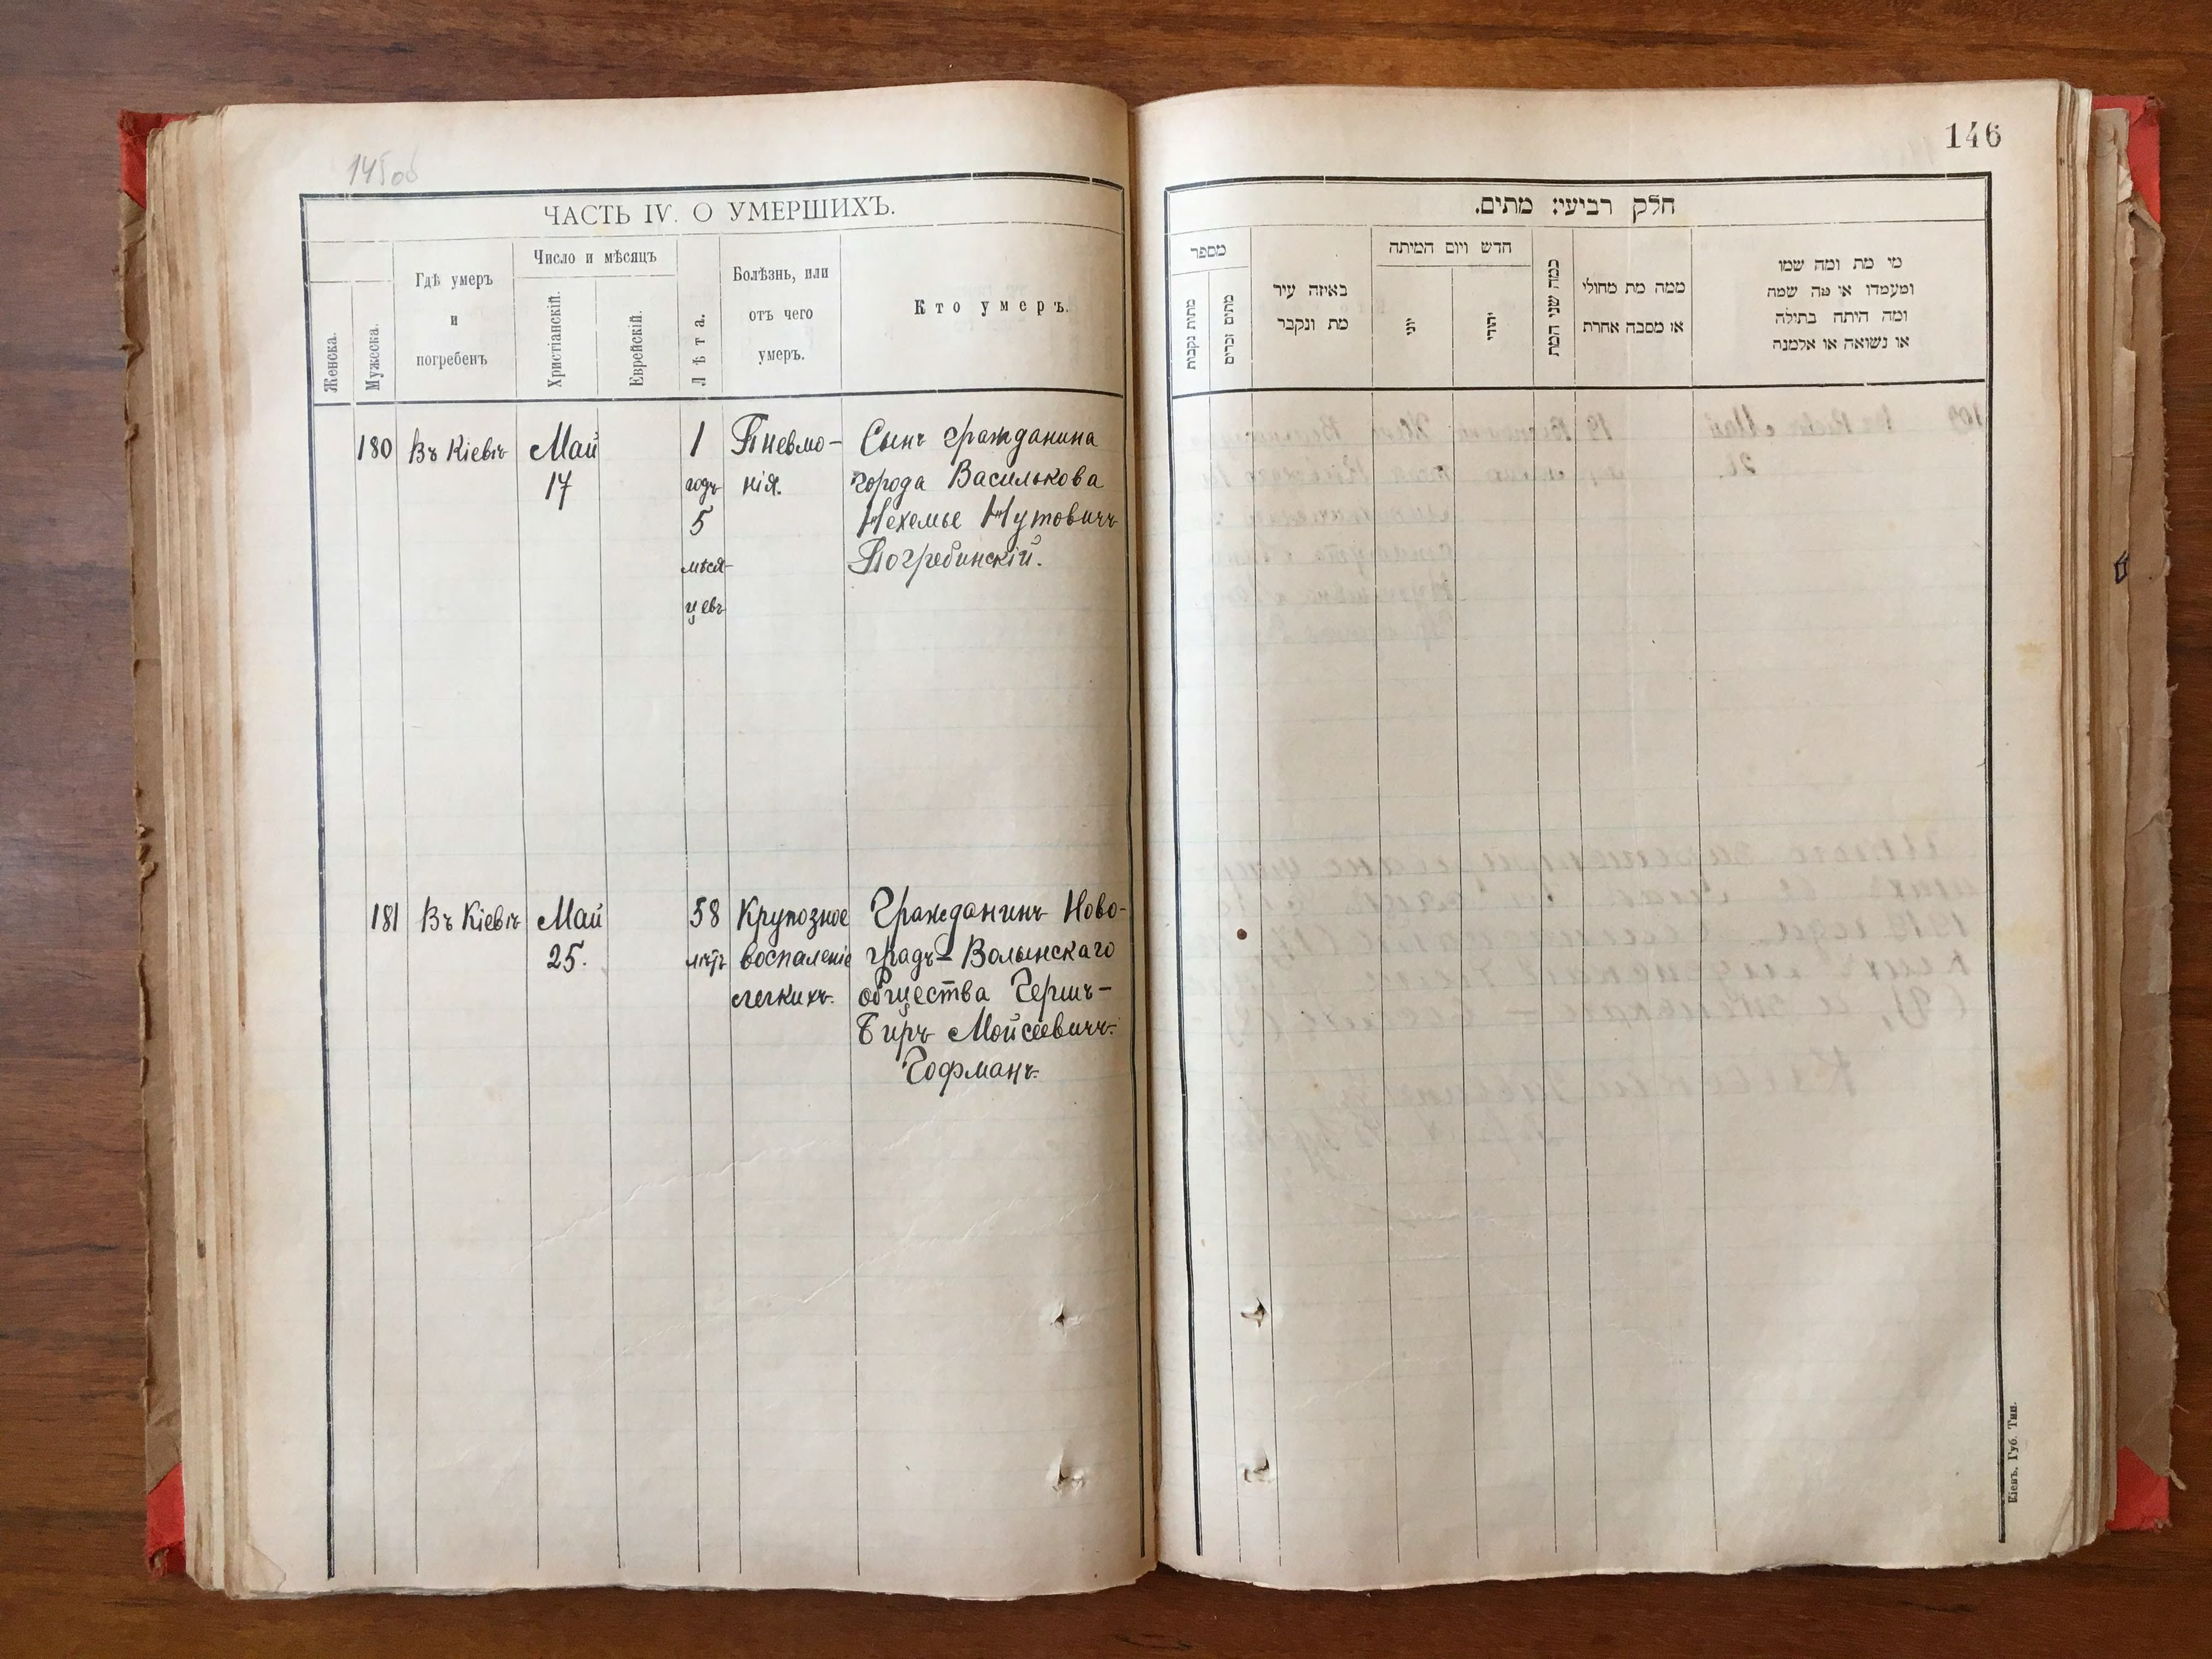 145об
ЧАСТЬ IV. О УМЕРШИХЪ.
Женска.
Мужеска.
Гдѣ умеръ
и
погребенъ
Число и мѣсяцъ
Христіанскій.
Еврейскій.
Лѣта.
Болѣзнь, или
отъ чего
умеръ.
Кто умеръ.
180 Въ Кіевѣ Май 1 Пневмо- Сынъ гражданина
17 годъ нія. города Василькова
5 Нехемье Нутовичъ
мѣся- Погребинскій.
цевъ
181 Въ Кіевѣ Май 58 Крупозное Гражданинъ Ново-
25. лѣтъ воспаленіе градъ-Волынскаго
легкихъ. общества Герш-
Биръ Мойсеевичъ
Гофманъ.
146
חלק רביעי: מתים.
מספר
מתות נקבות
מתים זכרים
באיזה עיר
מת ונקבר
חדש ויום המיתה
יוני
יהודי
כמה שני המת
ממה מת מחולי
או מסבה אחרת
מי מת ומה שמו
ומעמדו או מה שמה
ומה היתה בתילה
או נשואה או אלמנה
Кіевъ. Губ. Тип.